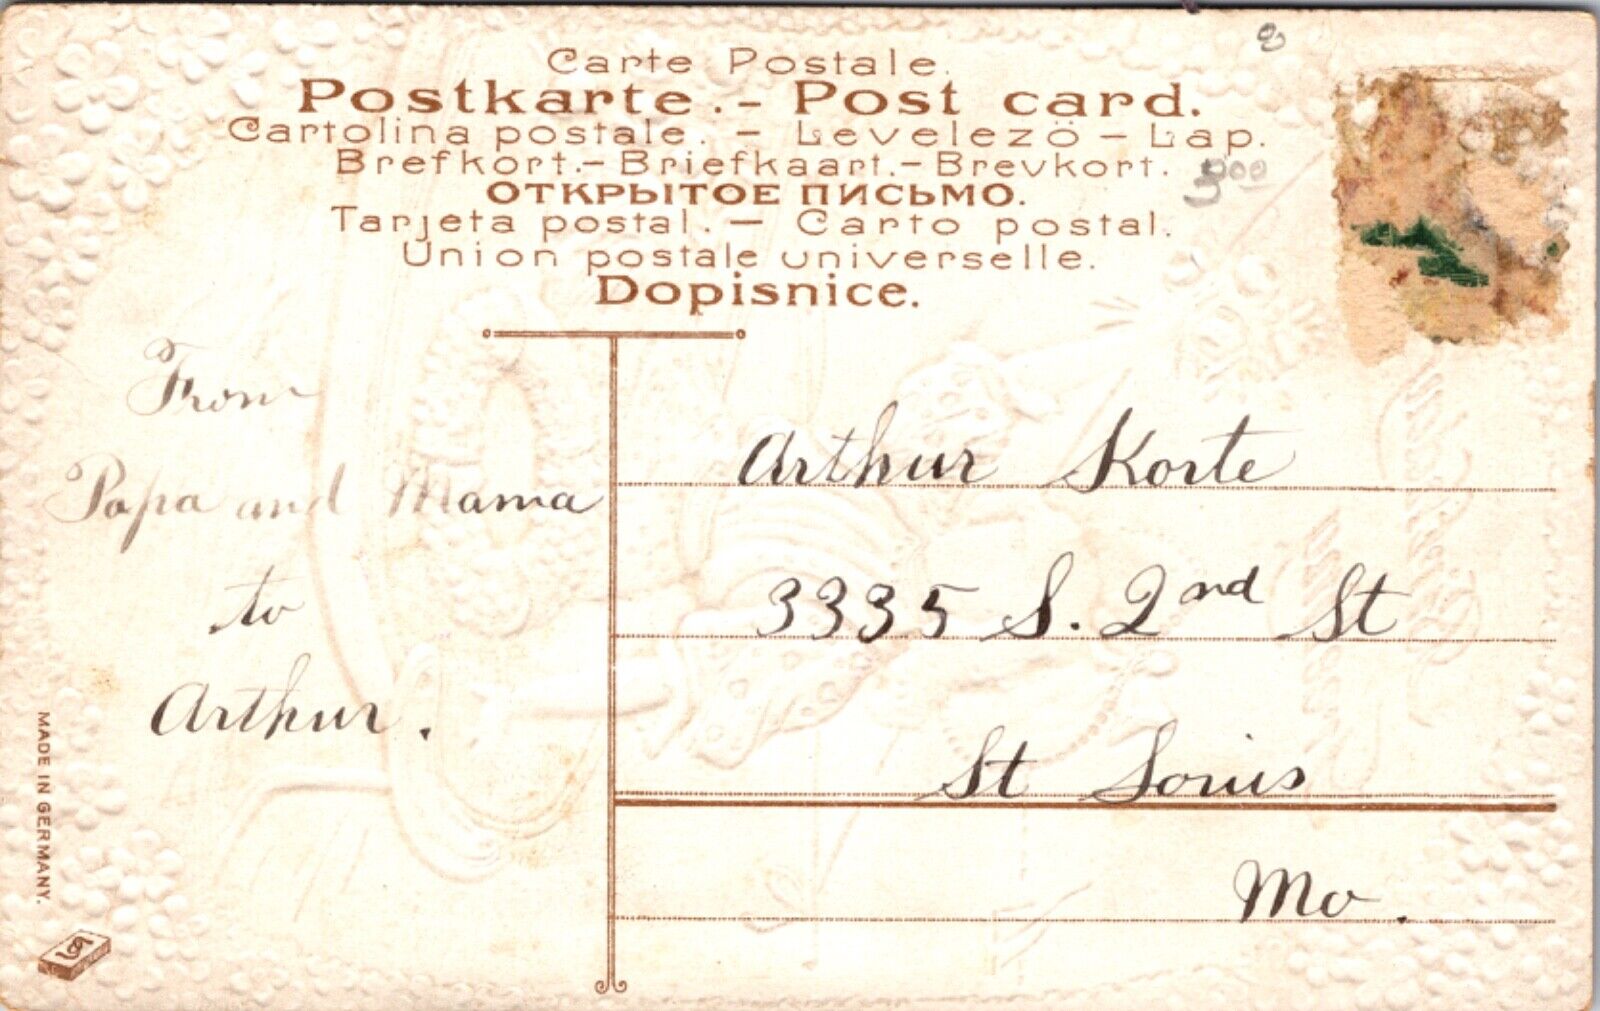 Carte Postale.
Postkarte.- Post card.
Cartolina postale. - Levelezö - Lap.
Brefkort.- Briefkaart.- Brevkort.
ОТКРЫТОЕ ПИСЬМО.
Tarjeta postal. - Carto postal.
Union postale universelle.
Dopisnice.
300
From
Papa and Mama
to
Arthur.
Arthur Korte
3335 S. 2nd St
St Louis
Mo.
MADE IN GERMANY.